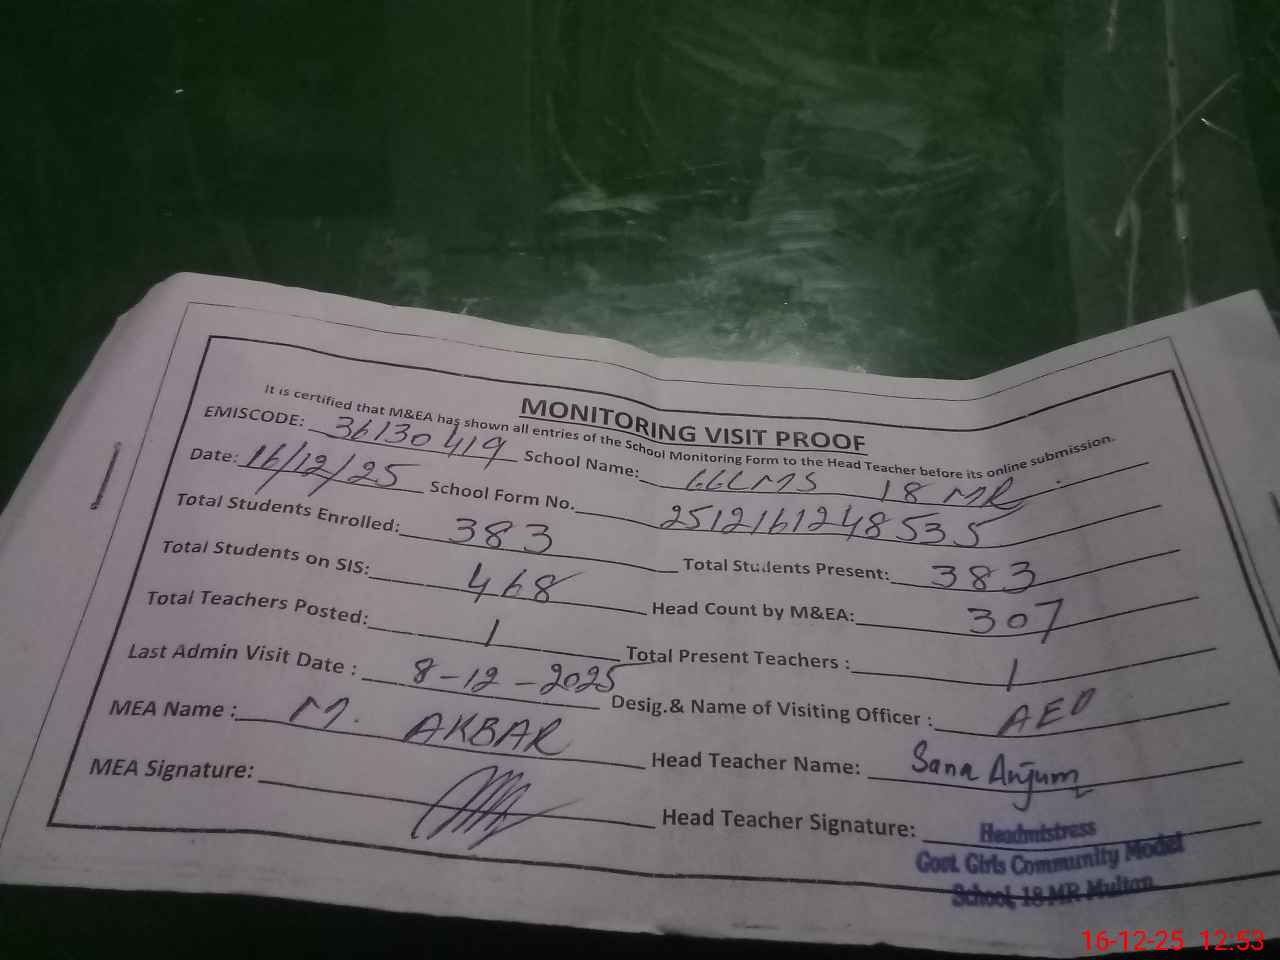 MONITORING VISIT PROOF
It is certified that M&EA has shown all entries of the School Monitoring Form to the Head Teacher before its online submission.
EMISCODE: 36130419 School Name: GGCMS 18 MR
Date: 16/12/25 School Form No. 2512161248535
Total Students Enrolled: 383 Total Students Present: 383
Total Students on SIS: 468 Head Count by M&EA: 307
Total Teachers Posted: 1 Total Present Teachers : 1
Last Admin Visit Date : 8-12-2025 Desig.& Name of Visiting Officer : AEO
MEA Name : M. AKBAR Head Teacher Name: Sana Anjum
MEA Signature: Head Teacher Signature:
Headmistress
Govt. Girls Community Model
School, 18 MR Multan
16-12-25 12:53